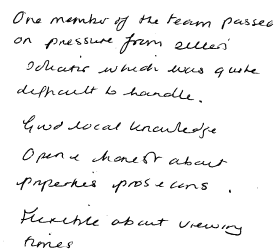 One member of the team passed
on pressure from sellers
solicitor which was quite
difficult to handle.
Good local knowledge
Open & honest about
properties pros & cons.
Flexible about viewing
times